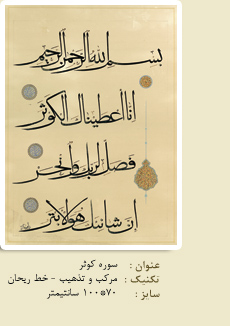 بسم الله الرحمن الرحيم
انا اعطيناك الكوثر
فصل لربك وانحر
ان شانئك هو الابتر
عنوان : سوره کوثر
تکنیک : مرکب و تذهیب - خط ریحان
سایز : ۷۰*۱۰۰ سانتیمتر